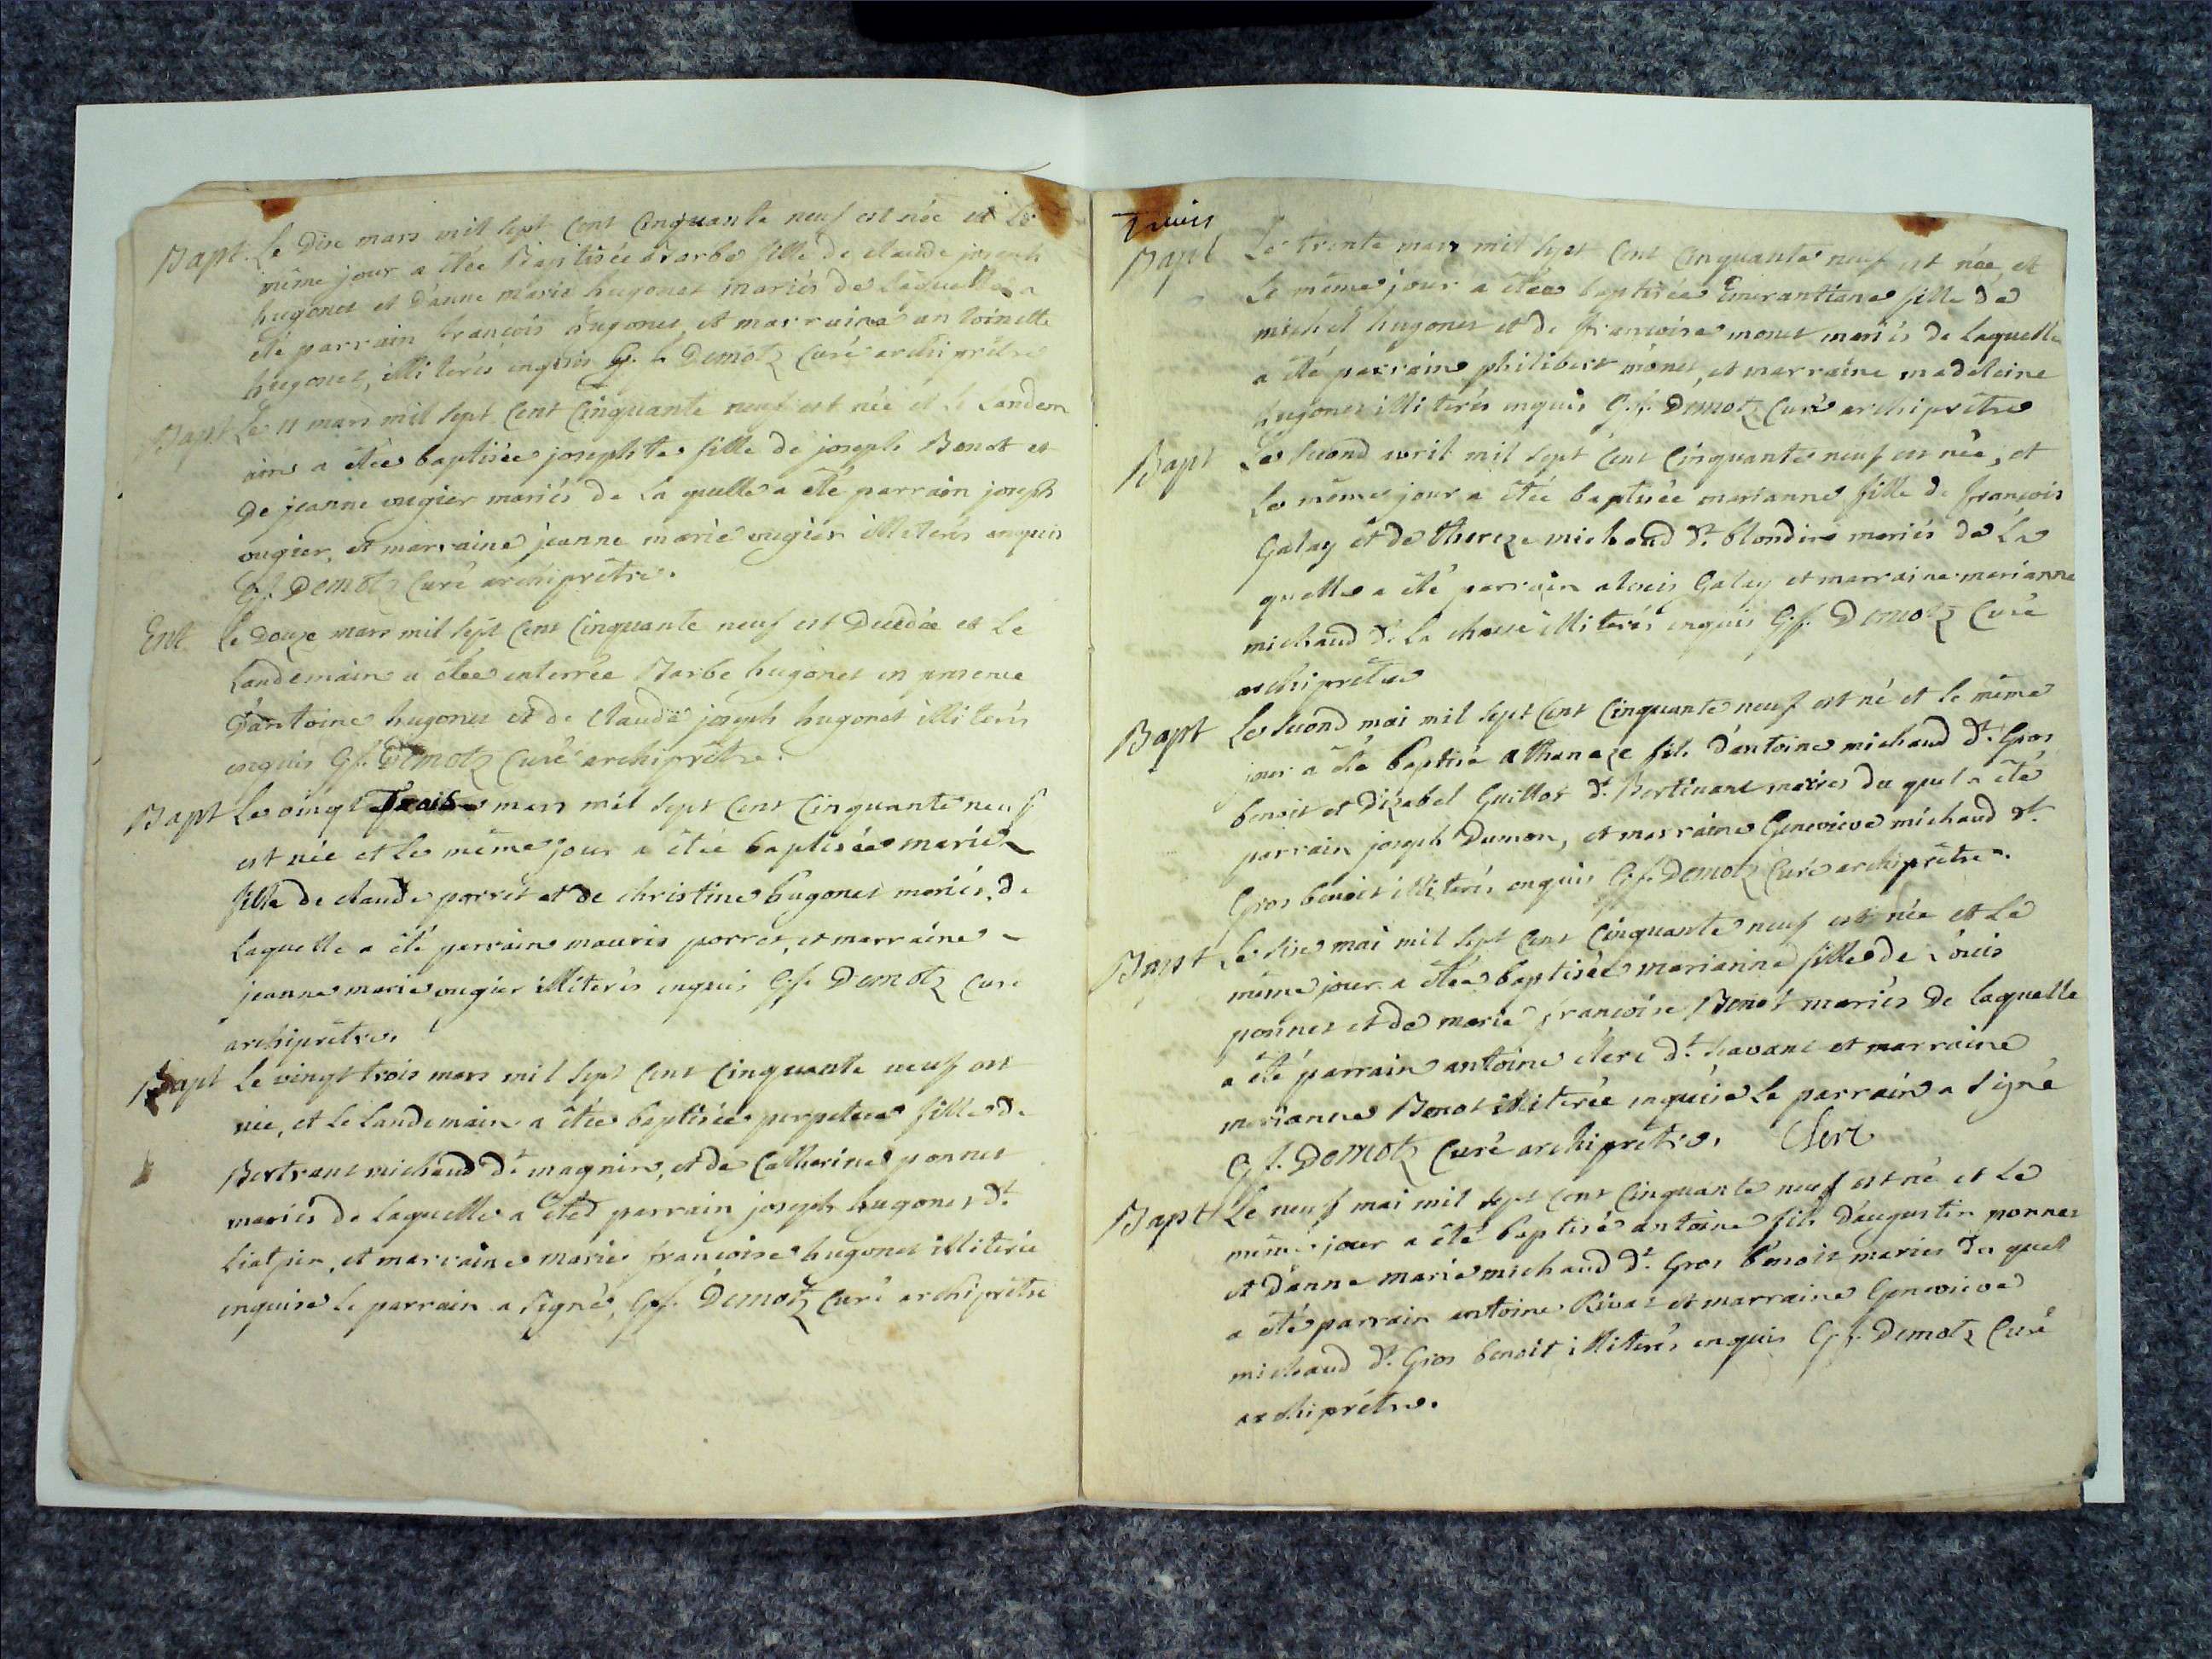 Bapt. Le Dix mars mil sept cent Cinquante neuf est née et le
même jour a étée Baptisée Barbe fille de claude joseph
hugonet et d'anne marie hugonet mariés de laquelle a
été parrain françois hugonet, et marraine antoinette
hugonet, illiterés enquis G. f. Demotz Curé archiprêtre
Bapt Le 11 mars mil sept Cent Cinquante neuf est née et le landem
ain a étée baptisée josephte fille de joseph Benot et
de jeanne ougier mariés de la quelle a été parrain joseph
ougier, et marraine jeanne marie ougier illiterés enquis
G f. Demotz Curé archiprêtre.
Ent. Le Douze mars mil sept Cent Cinquante neuf est Decedée et Le
Landemain a étée enterrée Barbe hugonet en presence
d'antoine hugonet et de Claude joseph hugonet illiterés
enquis G f. Demotz Curé archiprêtre.
Bapt Le vingt Trois mars mil sept Cent Cinquante neuf
est née et Le même jour a étée baptisée marie
fille de claude porret et de christine hugonet mariés, de
laquelle a été parrain mauris porret, et marraine
jeanne marie ougier illiterés enquis G f. Demotz Curé
archiprêtre.
Bapt Le vingt trois mars mil sept Cent Cinquante neuf est
née, et le landemain a étée baptisée perpetue fille de
Bertrant michaud dt. magnin, et de Catherine ponnet
mariés de laquelle a été parrain joseph hugonet dt.
, et marraine marie françoise hugonet illiterée
enquise le parrain a signé, G f. Demotz Curé archiprêtre
Bapt Le trente mars mil sept Cent Cinquante neuf est née, et
Le même jour a étée baptisée Emerantiane fille de
michel hugonet et de françoise monet mariés de laquelle
a été parrain philibert monet, et marraine madeleine
hugonet illiterés enquis G. f. Demotz Curé archiprêtre
Bapt Le second avril mil sept Cent Cinquante neuf est née, et
Le même jour a étée baptisée marianne fille de françois
Galay et de thereze michaud dt. blondin mariés de La
quelle a été parrain alexis Galay et marraine marianne
michaud dt. La chasse illiterés enquis G f. Demotz Curé
archiprêtre
Bapt Le second mai mil sept Cent Cinquante neuf est né et le même
jour a été baptisé athanaze fils d'antoine michaud dt. Gros
benoit et Dizabel Guillot dt. Bertinant mariés du quel a été
parrain joseph Dumon, et marraine Genevieve michaud dt.
Gros benoit illiterés enquis G. f. Demotz Curé archiprêtre.
Bapt Le six mai mil sept Cent Cinquante neuf est née et Le
même jour a étée baptisée marianne fille de Louis
ponnet et de marie françoise Benot mariés de laquelle
a été parrain antoine clerc dt. savant et marraine
marianne Benot illiterée enquise Le parrain a signé
G f. Demotz Curé archiprêtre. Clerc
Bapt Le neuf mai mil sept Cent Cinquante neuf est né et Le
même jour a été baptisé antoine fils d'augustin ponnet
et d'anne marie michaud dt. Gros benoit mariés du quel
a été parrain antoine Rivaz et marraine Genevieve
michaud dt. Gros benoit illiterés enquis G f. Demotz Curé
archiprêtre.